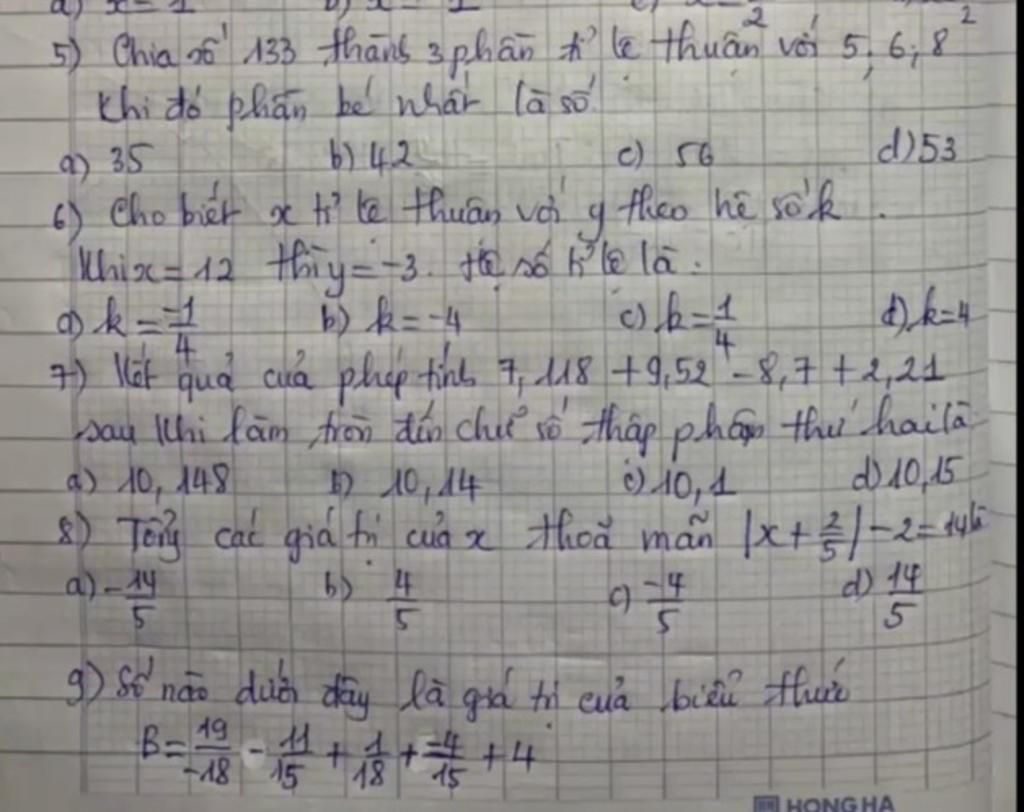 a) x = 1 b) x =
5) Chia số 133 thành 3 phần tỉ lệ thuận với 5; 6; 8
Khi đó phần bé nhất là số
a) 35 b) 42 c) 56 d) 53
6) Cho biết x tỉ lệ thuận với y theo hệ số k.
Khi x = 12 thì y = -3. Hệ số tỉ lệ là:
a) k = -1/4 b) k = -4 c) k = 1/4 d) k = 4
7) Kết quả của phép tính 7,118 + 9,52 - 8,7 + 2,21
sau khi làm tròn đến chữ số thập phân thứ hai là
a) 10,148 b) 10,14 c) 10,1 d) 10,15
8) Tổng các giá trị của x thoã mãn |x + 2/5| - 2 = 14 là
a) -14/5 b) 4/5 c) -4/5 d) 14/5
9) Số nào dưới đây là giá trị của biểu thức
B = 19/-18 - 11/15 + 1/18 + -4/15 + 4
HONG HA